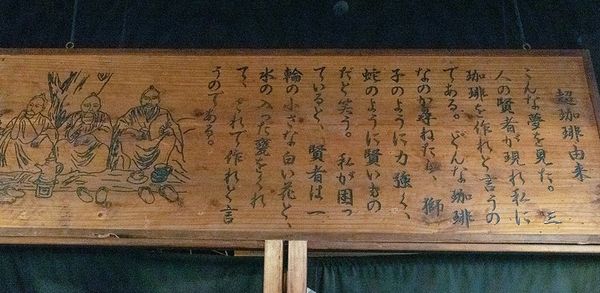 超珈琲由来
こんな夢を見た。三
人の賢者が現れ私に
珈琲を作れと言うの
である。どんな珈琲
なのか尋ねたら、獅
子のように力強く、
蛇のように賢いもの
だと笑う。私が困っ
ていると、賢者は一
輪の小さな白い花と、
水の入った甕をくれ
て、これで作れと言
うのである。